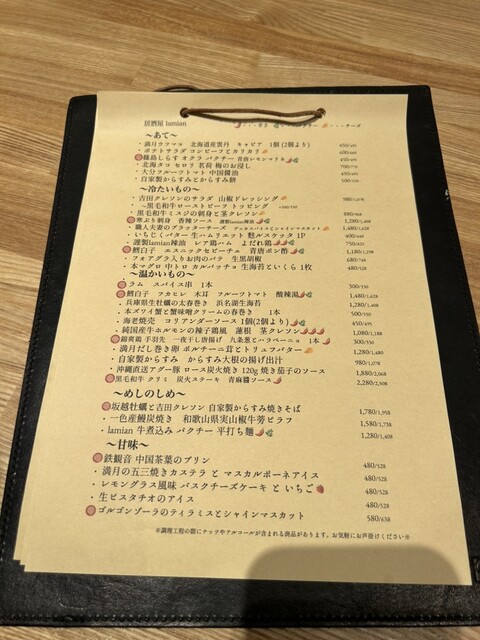 居酒屋 lamian
～あて～
・満月ウフマヨ 北海道産雲丹 キャビア 1個(2個より) 450/495
・ポテトサラダ コンビーフとカリカリ
篠島しらす オクラ パクチー 青唐レモンリネ
・北海タコ セロリ 茗荷 梅のお浸し
・大分フルーツトマト 中国醤油 450/495
・自家製からすみとからすみ餅 500/550
～冷たいもの～
・吉田クレソンのサラダ 山椒ドレッシング 980/1,078
～黒毛和牛ローストビーフ トッピング +500/550
・黒毛和牛ミスジの刺身と茎クレソン
寒ぶり刺身 香辣ソース
・職人夫妻のブラッターチーズ
・いちじくバター 生ハムリエット 魅ルスケッタ 1P 400/440
・謹製lamian辣油 レア鶏ハム よだれ鶏 750/825
鱈白子 エスニックセビーチェ 青唐ポン酢 1,180/1,298
・フォアグラ入りお肉のパテ 生黒胡椒 680/748
・本マグロ 中トロ カルパッチョ 生海苔といくら 1枚 480/528
～温かいもの～
ラム スパイス串 1本 500/550
鱈白子 フカヒレ 木耳 フルーツトマト 酸辣湯 1,480/1,628
・兵庫県産生牡蠣の太春巻き 浜名湖生海苔 1,280/1,408
・本ズワイ蟹と蟹味噌クリームの春巻き 1本 500/550
・海老焼売 コリアンダーソース 1個(2個より) 450/495
・純国産牛ホルモンの辣子鶏風 蓮根 茎クレソン 1,080/1,188
錦爽鶏 手羽先 一夜干し唐揚げ 九条葱とハラペーニョ 1本 300/330
・満月だし巻き卵 ポルチーニ茸とトリュフバター 1,280/1,408
・自家製からすみ からすみ大根の揚げ出汁 980/1,078
・沖縄直送アグー豚 ロース炭火焼き 120g 焼き茄子のソース 1,880/2,068
黒毛和牛 クリミ 炭火ステーキ 青麻醤ソース 2,280/2,508
～めしのしめ～
坂越牡蠣と吉田クレソン 自家製からすみ焼きそば 1,780/1,958
・一色産鰻炭焼き 和歌山県実山椒牛蒡ピラフ 1,580/1,738
・lamian 牛煮込み パクチー 平打ち麺 1,280/1,408
～甘味～
鉄観音 中国茶葉のプリン 480/528
・満月の五三焼きカステラ と マスカルポーネアイス 480/528
・レモングラス風味 バスクチーズケーキ と いちご 480/528
・生ピスタチオのアイス 480/528
ゴルゴンゾーラのティラミスとシャインマスカット 580/638
※調理工程の際にナッツやアルコールが含まれる商品があります。お気軽にお声掛けください※